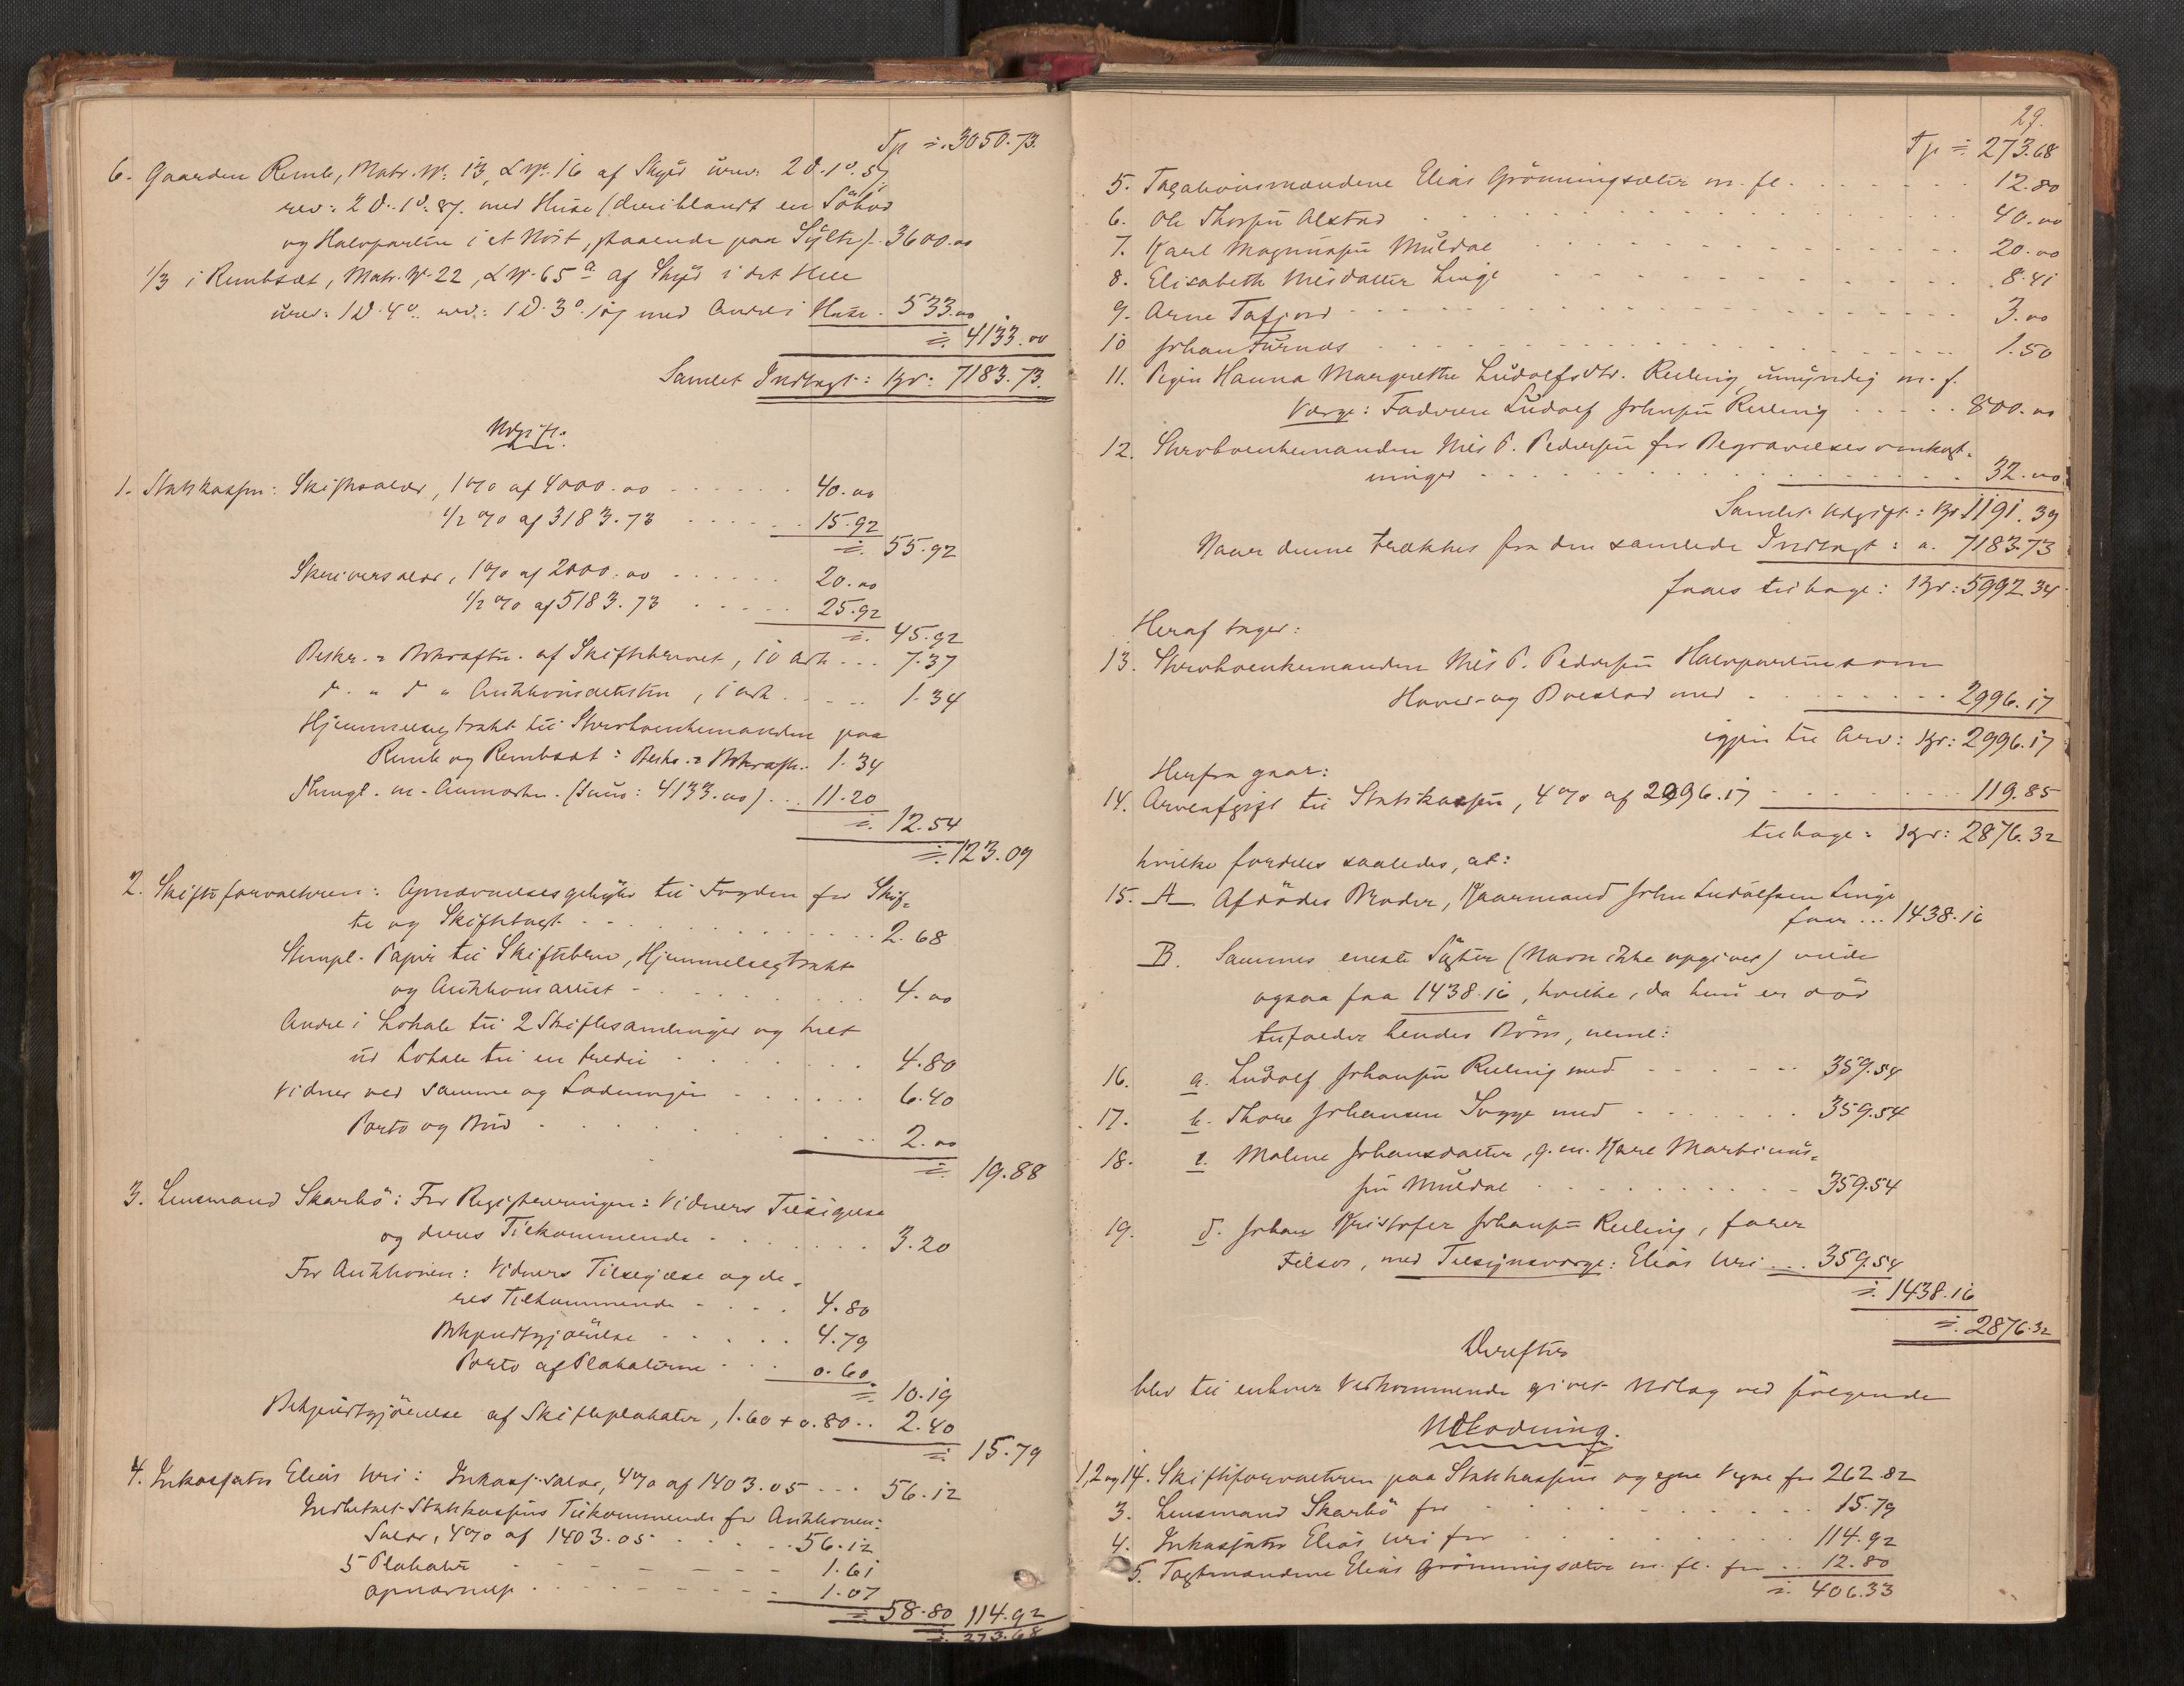 Tp = 3050.73.
6. Gaarden Remb, Matr. Nr. 13, L Nr. 16 af Skyld urev: 2 D. 1 o. 5 /
rev: 2 D. 1 o. 8 /. med Huse (deriblandt en Söbod
og Halvparten i et Nöst, staaende paa Sylte). 3600.00
1/3 i Rembsæt, Matr. Nr. 22, L Nr. 65 a af Skyld i det Hele
urev: 1 D. 4 o. rev.: 1 D. 3 o. 10 / med Andel i Huse. 533.00
= 4133.00
Samlet Indtægt: Kr: 7183.73.
Udgift:
1. Statskassen: Skiftesalær, 1 % af 4000.00 40.00
1/2 % af 3183.73 15.92
= 55.92
Skriversalær, 1 % af 2000.00 20.00
1/2 % af 5183.73 25.92
= 45.92
Beskr. & Bekræftn. af Skiftebrevet, 10 Ark ... 7.37
d. " d " Auktionsattesten, 1 ark 1.34
Hjemmelsextrakt til Stervboenkemanden paa
Remb og Rembsæt: Beskr. & Bekræft. 1.34
Thingl. m. Anmærkn. (Sum: 4133.00) .. 11.20
= 12.54
= 123.09
2. Skifteforvalteren: Opnævnelsesgebyhr til Fogden for Skif-
te og Skiftetaxt 2.68
Stempl. Papir til Skiftebrev, Hjemmelsextrakt
og Auktionsattest - 4.00
Andel i Lokale til 2 Skiftesamlinger og helt
ud Lokale til en tredie 4.80
Vidner ved samme og Lodningen 6.40
Porto og Bud 2.00
= 19.88
3. Lensmand Skarbö: For Registreringen: Vidners Tilsigelse
og deres Tilkommende 3.20
For Auktionen: Vidners Tilsigelse og de-
res Tilkommende 4.80
Bekjendtgjörelse 4.79
Porto af Plakaterne 0.60
= 10.19
Bekjendtgjörelse af Skifteplakater, 1.60 + 0.80 .. 2.40
= 15.79
4. Inkassator Elias Uri: Inkass. salær, 4 % af 1403.05 ... 56.12
Indbetalt Statskassens Tilkommende for Auktionen:
Salær, 4 % af 1403.05 56.12
5 Plakater 1.61
Opnævnelse 1.07
= 58.80 114.92
= 273.68
29.
Tp = 273.68
5. Taxationsmændene Elias Grönningsæter m. fl. 12.80
6. Ole Thorsen Alstad 40.00
7. Karl Magnussen Muldal 20.00
8. Elisabeth Nilsdatter Linge 8.41
9. Arne Tafjord 3.00
10 Johan Furnæs 1.50
11. Pigen Hanna Margrethe Ludolfsdtr. Relling, umyndig m. f.
Værge: Faderen Ludolf Johnsen Relling 800.00
12. Stervboenkemanden Nils P. Pedersen for Begravelsesomkost-
ninger 32.00
Samlet Udgift: Kr 1191.39
Naar denne trækkes fra den samlede Indtægt: a. 7183.73
faaes tilbage: Kr: 5992.34
Heraf tager:
13. Stervboenkemanden Nils P. Pedersen Halvparten som
Hoved- og Boeslod med 2996.17
igjen til Arv: Kr: 2996.17
Herfra gaar:
14. Arveafgift til Statskassen, 4 % af 2996.17 119.85
tilbage: Kr: 2876.32
hvilke fordeles saaledes, at:
15. A Afdödes Broder, Kaarmand John Ludolfsen Linge
faar ... 1438.16
B. Sammes eneste Söster (Navn ikke opgivet) vilde
ogsaa faa 1438.16, hvilke, da hun er död
tilfalder hendes Börn, neml:
16. a. Ludolf Johansen Relling med 359.54
17. b. Thore Johansen Sogge med 359.54
18. c. Maline Johansdatter, g. m. Karl Martinus-
sen Muldal 359.54
19. d. Johan Kristofer Johansen Relling, faaer
Fellesor, med Tilsynsværge: Elias Uri ... 359.54
= 1438.16
= 2876.32
Derefter
blev til enhver Vedkommende givet Udlæg ved fölgende
Udlodning.
1, 2 og 14. Skifteforvalteren paa Statskassens og egne Vegne for 262.82
3. Lensmand Skarbö for 15.79
4. Inkassator Elias Uri for 114.92
5. Taxtmændene Elias Grönningsæter m. fl. for .. 12.80
= 406.33